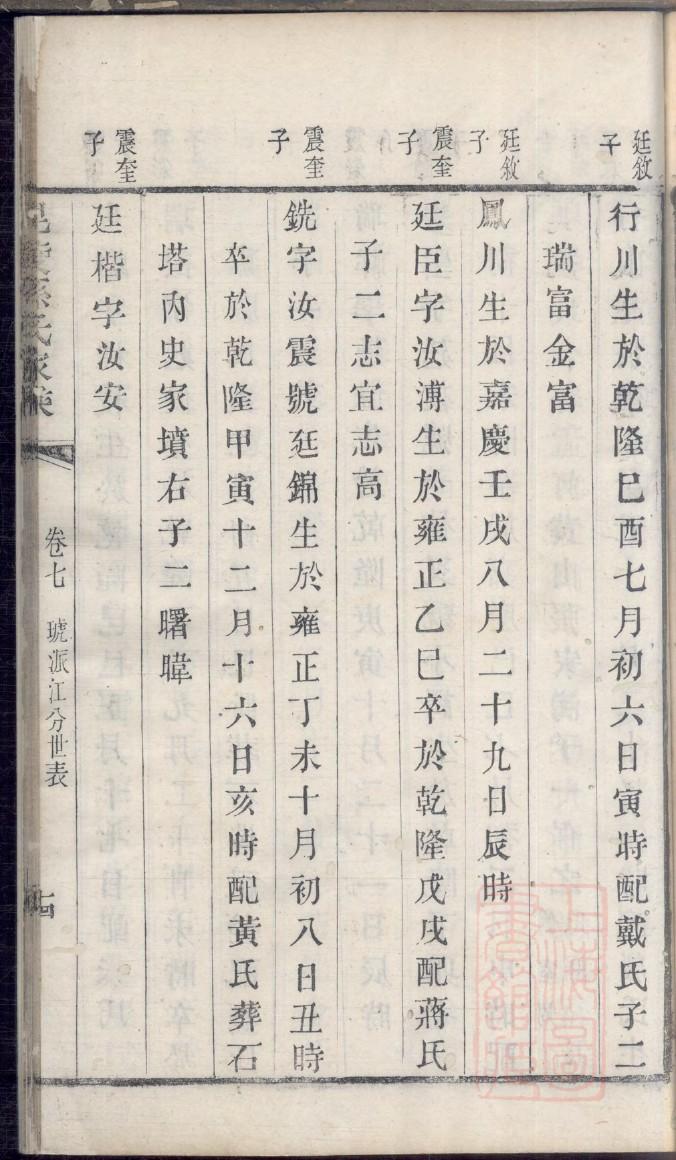 廷敘子
行川生於乾隆巳酉七月初六日寅時配戴氏子二
瑞富金富
廷敘子
鳳川生於嘉慶壬戌八月二十九日辰時
震奎子
廷臣字汝溥生於雍正乙巳卒於乾隆戊戌配蔣氏
子二志宜志高
震奎子
銑字汝震號廷錦生於雍正丁未十月初八日丑時
卒於乾隆甲寅十二月十六日亥時配黃氏葬石
塔內史家墳右子二曙暐
震奎子
廷楷字汝安
孫氏家
卷七 琥派江分世表